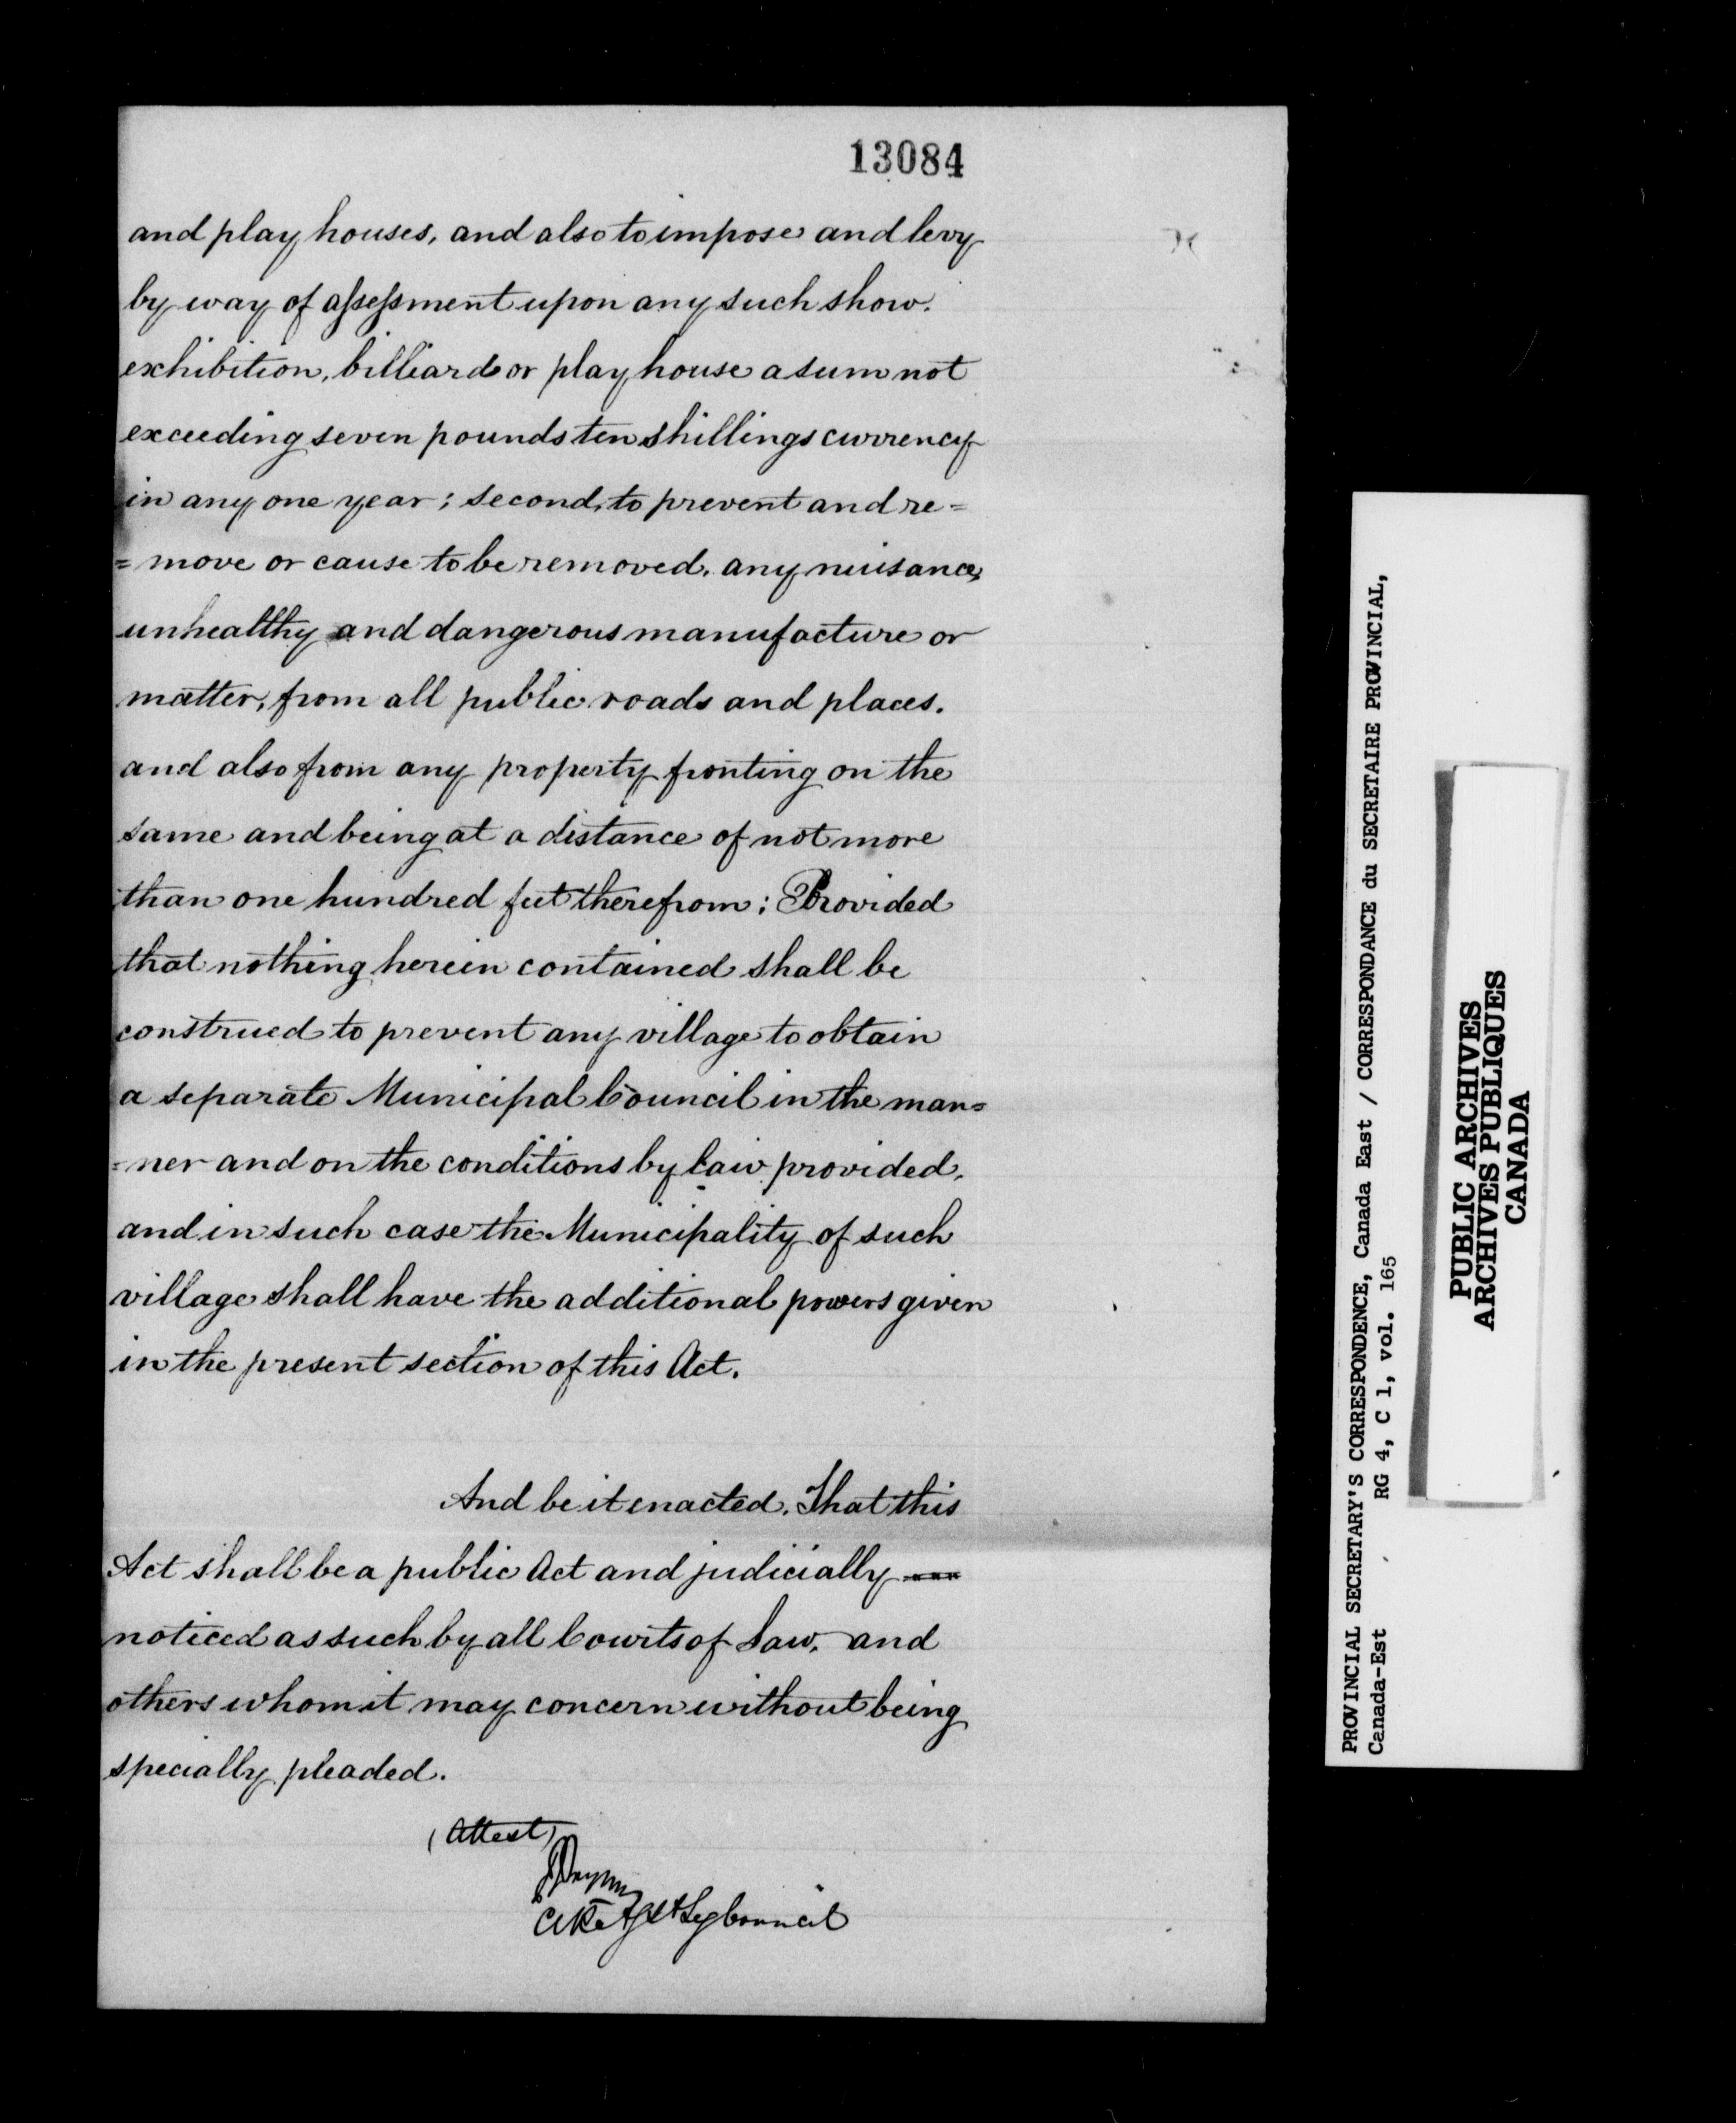 13084
and play houses, and also to impose and levy
by way of assessment upon any such show.
exhibition, billiard or play house a sum not
exceeding seven pounds ten shillings currency
in any one year; second, to prevent and re=
=move or cause to be removed, any nuisance,
unhealthy and dangerous manufacture or
matter, from all public roads and places.
and also from any property fronting on the
same and being at a distance of not more
than one hundred feet therefrom: Provided
that nothing herein contained shall be
construed to prevent any village to obtain
a separate Municipal Council in the man=
=ner and on the conditions by law provided,
and in such case the Municipality of such
village shall have the additional powers given
in the present section of this Act.
And be it enacted, That this
Act shall be a public Act and judicially
noticed as such by all Courts of Law, and
others whom it may concern without being
specially pleaded.
(Attest)
Leg Council
PROVINCIAL SECRETARY'S CORRESPONDENCE, Canada East / CORRESPONDANCE du SECRETAIRE PROVINCIAL,
Canada-Est RG 4, C 1, vol. 165
PUBLIC ARCHIVES
ARCHIVES PUBLIQUES
CANADA